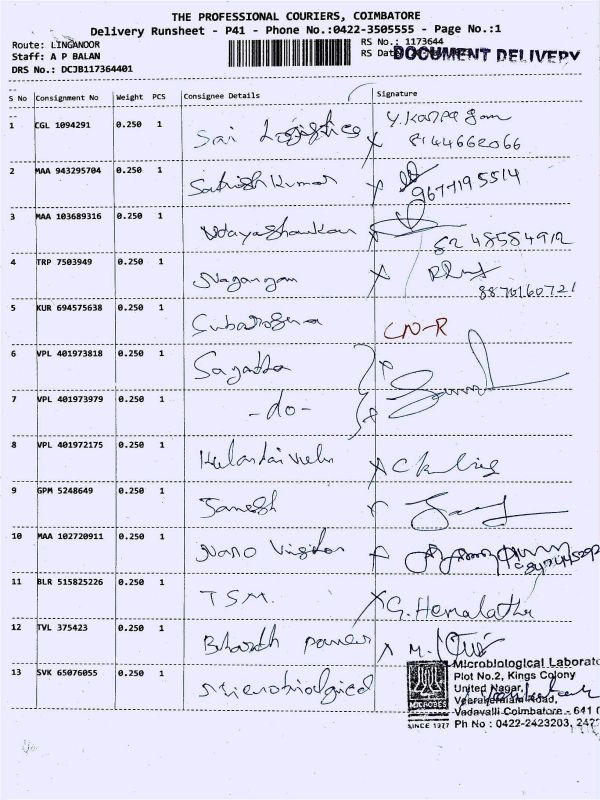 THE PROFESSIONAL COURIERS, COIMBATORE
Delivery Runsheet - P41 - Phone No.:0422-3505555 - Page No.:1
Route: LINGANOOR
Staff: A P BALAN
DRS No.: DCJB117364401
RS No.: 1173644
RS Dat
DOCUMENT DELIVERY
S No Consignment No Weight PCS Consignee Details Signature
1 CGL 1094291 0.250 1 Sai Logistics Y. Karpagam
8144662066
2 MAA 943295704 0.250 1 Sathish Kumar 9677195514
3 MAA 103689316 0.250 1 Udayashankar 8248584912
4 TRP 7503949 0.250 1 Nagarajan
8870160721
5 KUR 694575638 0.250 1 CN-R
6 VPL 401973818 0.250 1
7 VPL 401973979 0.250 1 -do-
8 VPL 401972175 0.250 1
9 GPM 5248649 0.250 1 Janesh
10 MAA 102720911 0.250 1 Nano
11 BLR 515825226 0.250 1 TSM. G. Hemalatha
12 TVL 375423 0.250 1 Bharath power
13 SVK 65076055 0.250 1
MICROBES
SINCE 1977
Microbiological Laborato
Plot No.2, Kings Colony
United Nagar,
Veerakeralam Road,
Vadavalli Coimbatore - 641 0
Ph No : 0422-2423203, 242